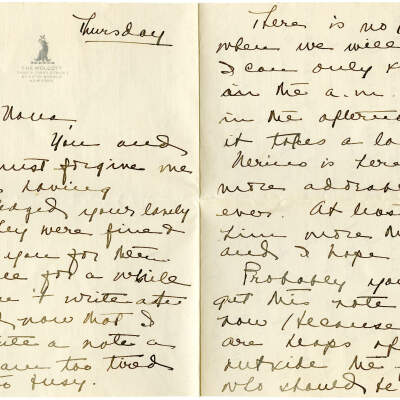 Thursday
THE WOLCOTT
NEW YORK
Nona
You and
must forgive me
having
your lovely
they were fine
you for them
for a while
't write after
now that I
a note a
am too tired
too busy.
There is no
when we will
I can only
in the a.m.
in the afterno
it takes a lo
Nerino is here
more adorab
ever. At las
him more th
and I hope
Probably you
get this note
now (because
are heaps of
outside the
who should be